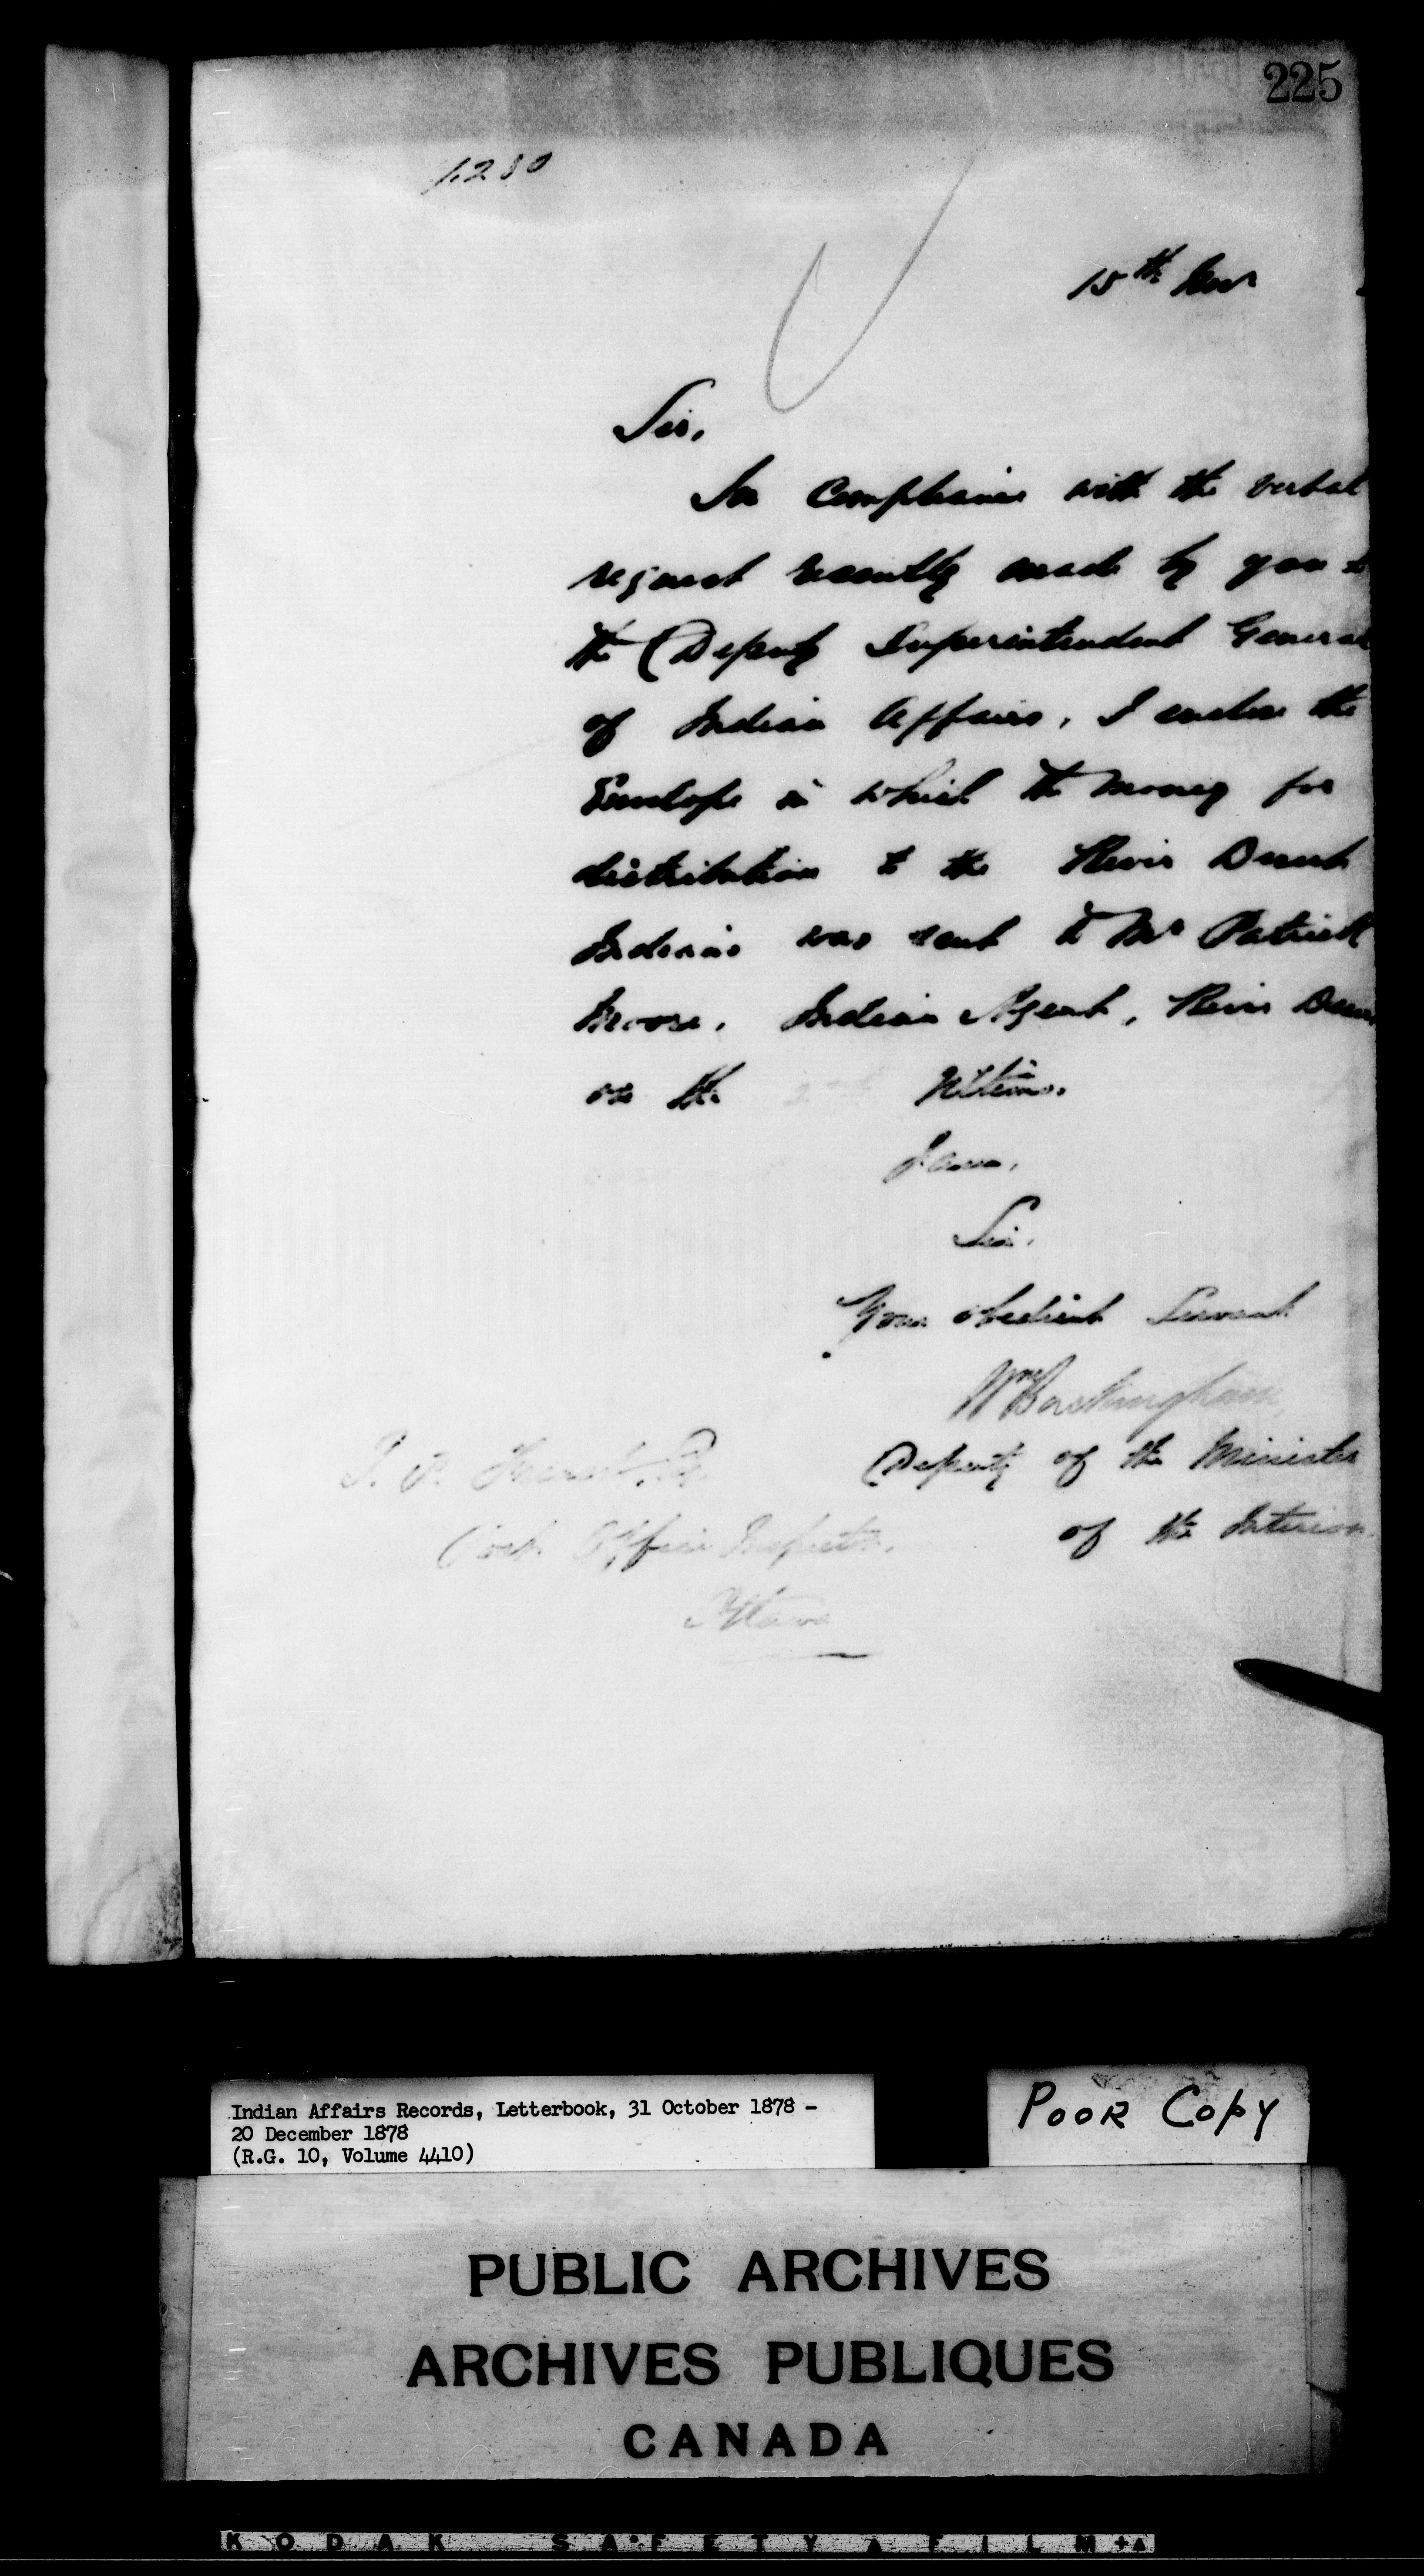 225
15th Nov
Sir,
In Compliance with the verbal
request recently made by you to
the Deputy Superintendent General
of Indian Affairs, I enclose the
Envelope in which the money for
distribution to the River Desert
Indians was sent to Mr Patrick
Moore, Indian Agent, River Desert
on the 2nd Ultimo.
I am,
Sir,
Your obedient Servant
Wm Buckingham
Deputy of the Minister
of the Interior
Post Office Inspector,
Ottawa
Indian Affairs Records, Letterbook, 31 October 1878 -
20 December 1878
(R.G. 10, Volume 4410)
POOR COPY
PUBLIC ARCHIVES
ARCHIVES PUBLIQUES
CANADA
KODAK SAFETY FILM